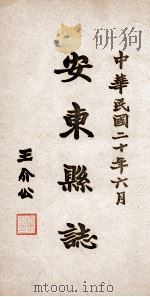 中華民國二十年六月
安東縣誌
王介公
mtoou.info/edu